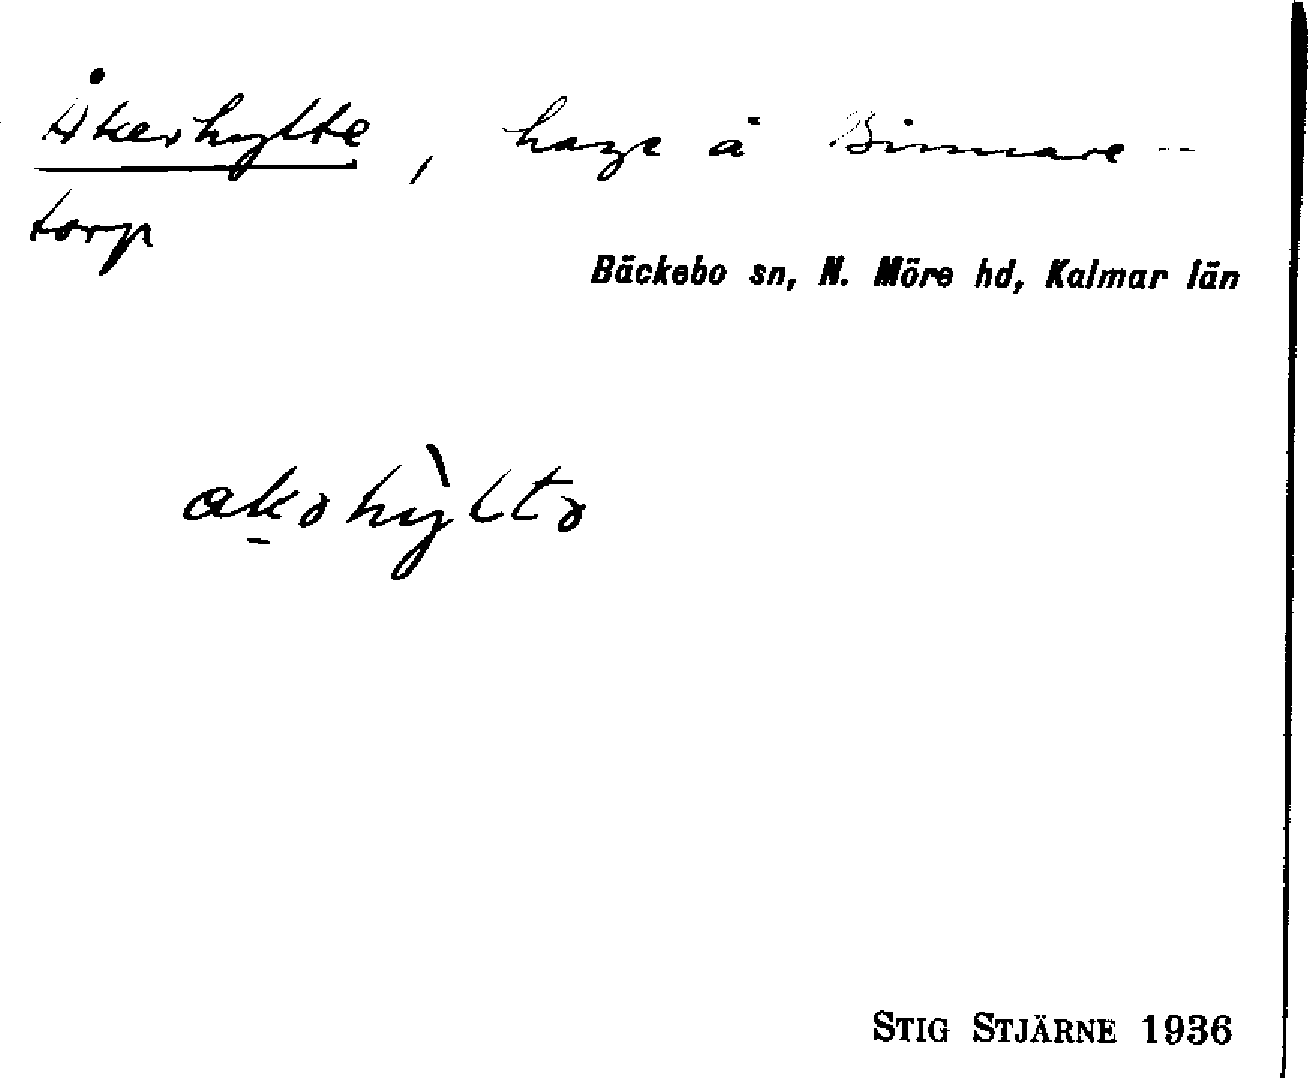 Åkerhylte, hage å Binnare-
torp
Bäckebo sn, N. Möre hd, Kalmar län
STIG STJÄRNE 1936